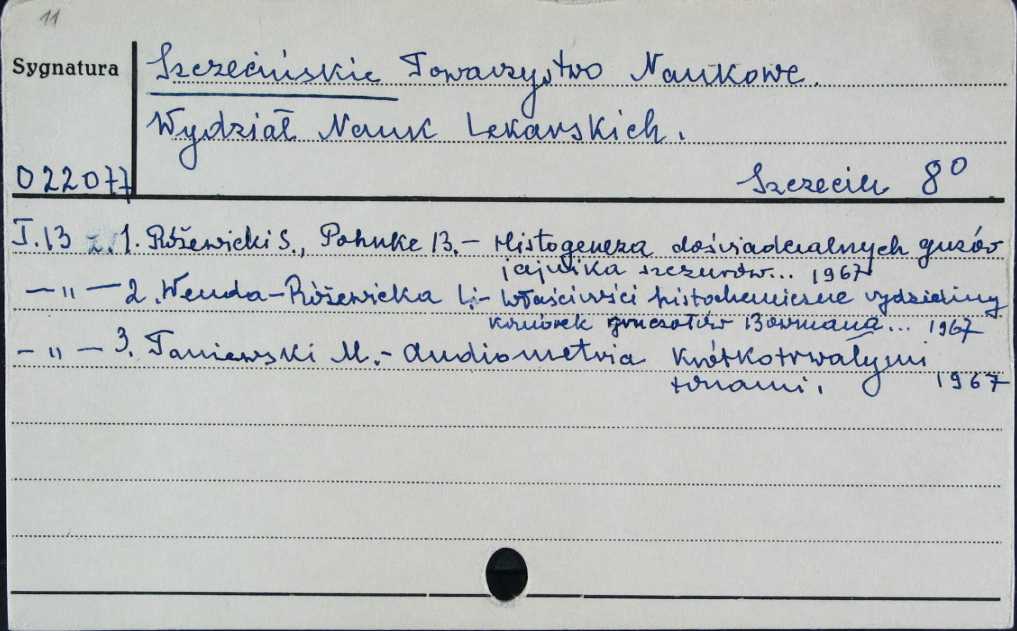 11
Sygnatura
Szczecińskie Towarzystwo Naukowe.
Wydział Nauk Lekarskich.
022077
Szczecin 8⁰
T.13 z.1. Różewicki S., Pohnke B.- Histogeneza doświadczalnych guzów
jajnika szczurów... 1967
— " — 2. Wenda-Różewicka L.- Właściwości histochemiczne wydzieliny
komórek gruczołów Bowmana... 1967
— " — 3. Taniewski M.- Audiometria krótkotrwałymi
tonami. 1967